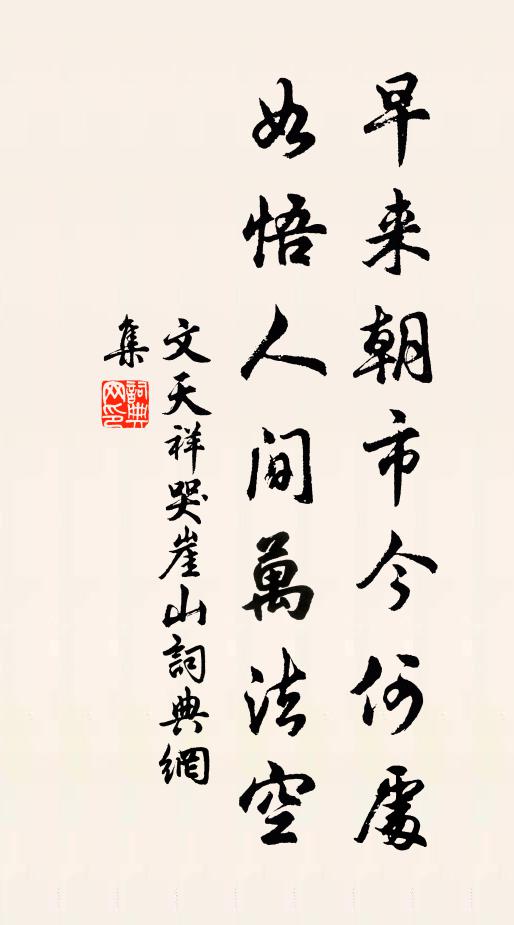 早来朝市今何處
如悟人间萬法空
文天祥哭崖山詞典網
集
詞典网印